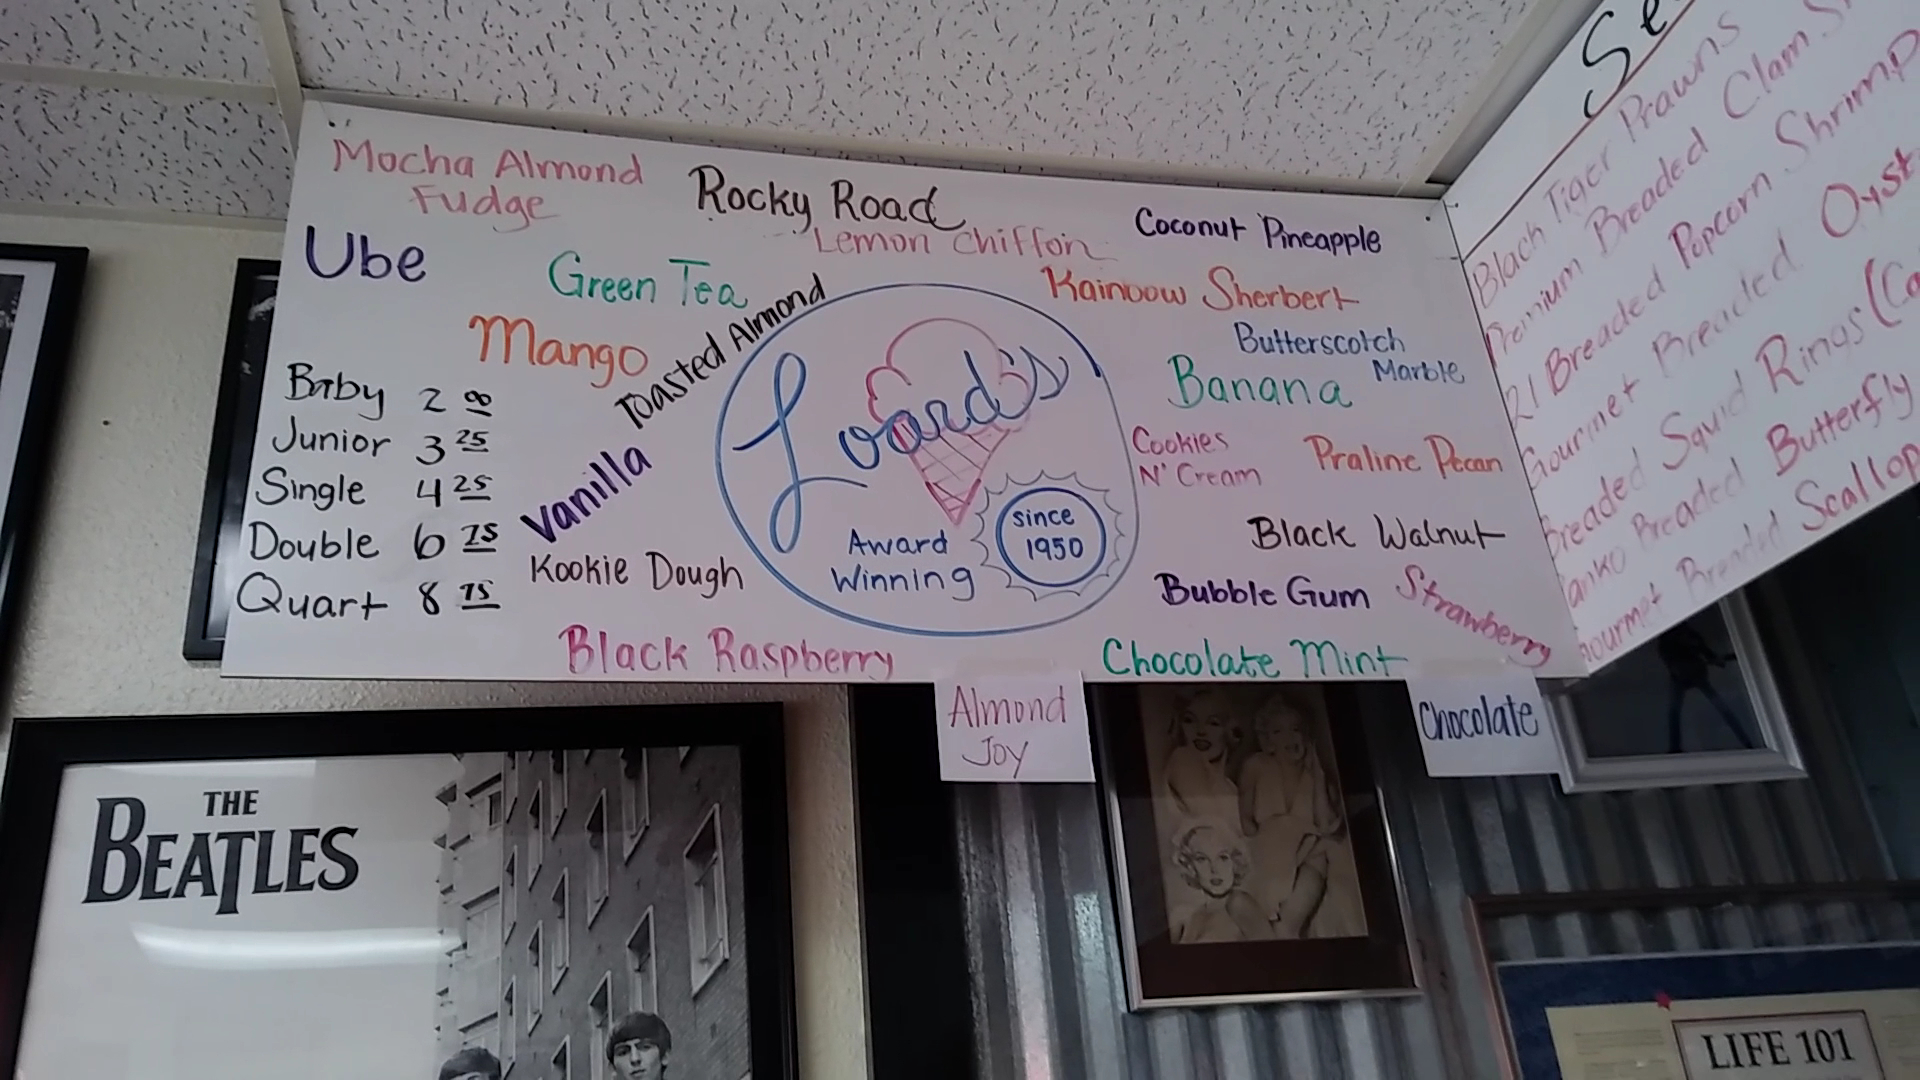 Mocha Almond
Fudge
Rocky Road
Lemon Chiffon
Coconut Pineapple
Ube
Green Tea
Kainbow Sherbert
Mango
Toasted Almond
Butterscotch
Marble
Banana
Baby 2 00
Junior 3 25
Single 4 25
Double 6 75
Quart 8 75
Vanilla
Kookie Dough
Loard's
Award
Winning
since
1950
Cookies
N' Cream
Praline Pecan
Black Walnut
Bubble Gum
Strawberry
Black Raspberry
Chocolate Mint
Almond
Joy
Chocolate
Black Tiger Prawns
Premium Breaded Clam
21 Breaded Popcorn Shrimp
Gourmet Breaded
Breaded Squid Rings
Panko Breaded Butterfly
Gourmet Breaded Scallop
THE
BEATLES
LIFE 101